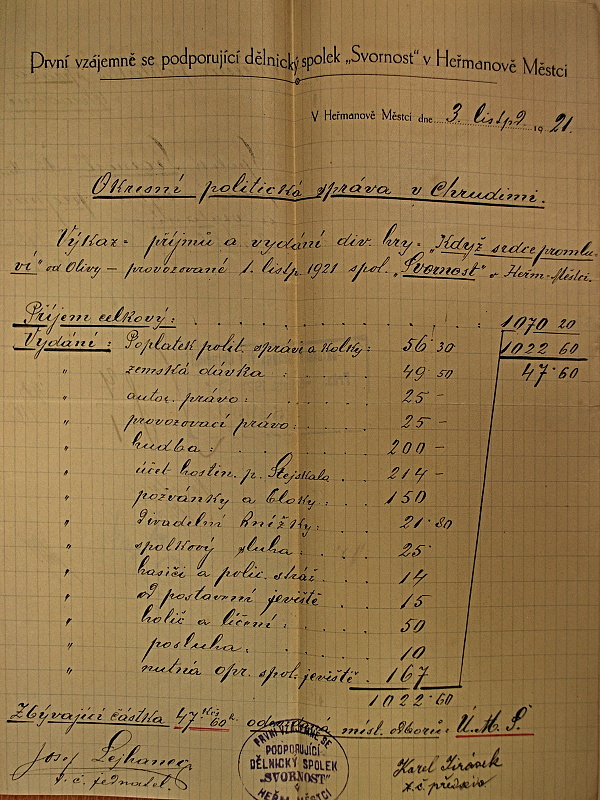 První vzájemně se podporující dělnický spolek „Svornost" v Heřmanově Městci
V Heřmanově Městci dne 3. listop 1921.
Okresní politická správa v Chrudimi.
Výkaz příjmů a vydání div. hry: „Když srdce promlu-
ví" od Olivy – provozované 1. listp. 1921 spol. „Svornost" v Heřm-Městci.
Příjem celkový: 1070 20
Vydání: Poplatek polit. správě a kolky: 56 30 1022 60
" zemská dávka 49 50 47 60
" autor. právo: 25 –
" provozovací právo: 25 –
" hudba: 200 –
" účet hostin. p. Stejskala 214 –
" pozvánky a bloky: 150
" divadelní knížky: 21 80
" spolkový sluha: 25
" hasiči a polic. stráž 14
" od postavení jeviště 15
" holič a líčení: 50
" posluha: 10
" nutná opr. spol. jeviště 167
1022 60
Zbývající částka 47 Kčs 60 h. odevzdá míst. odboru Ú. M. Š.
PRVNÍ VZÁJEMNĚ SE
PODPORUJÍCÍ
DĚLNICKÝ SPOLEK
„SVORNOST"
V
HEŘM. MĚSTCI
Josef
t. č. jednatel.
Karel Jirásek
t. č. předseda